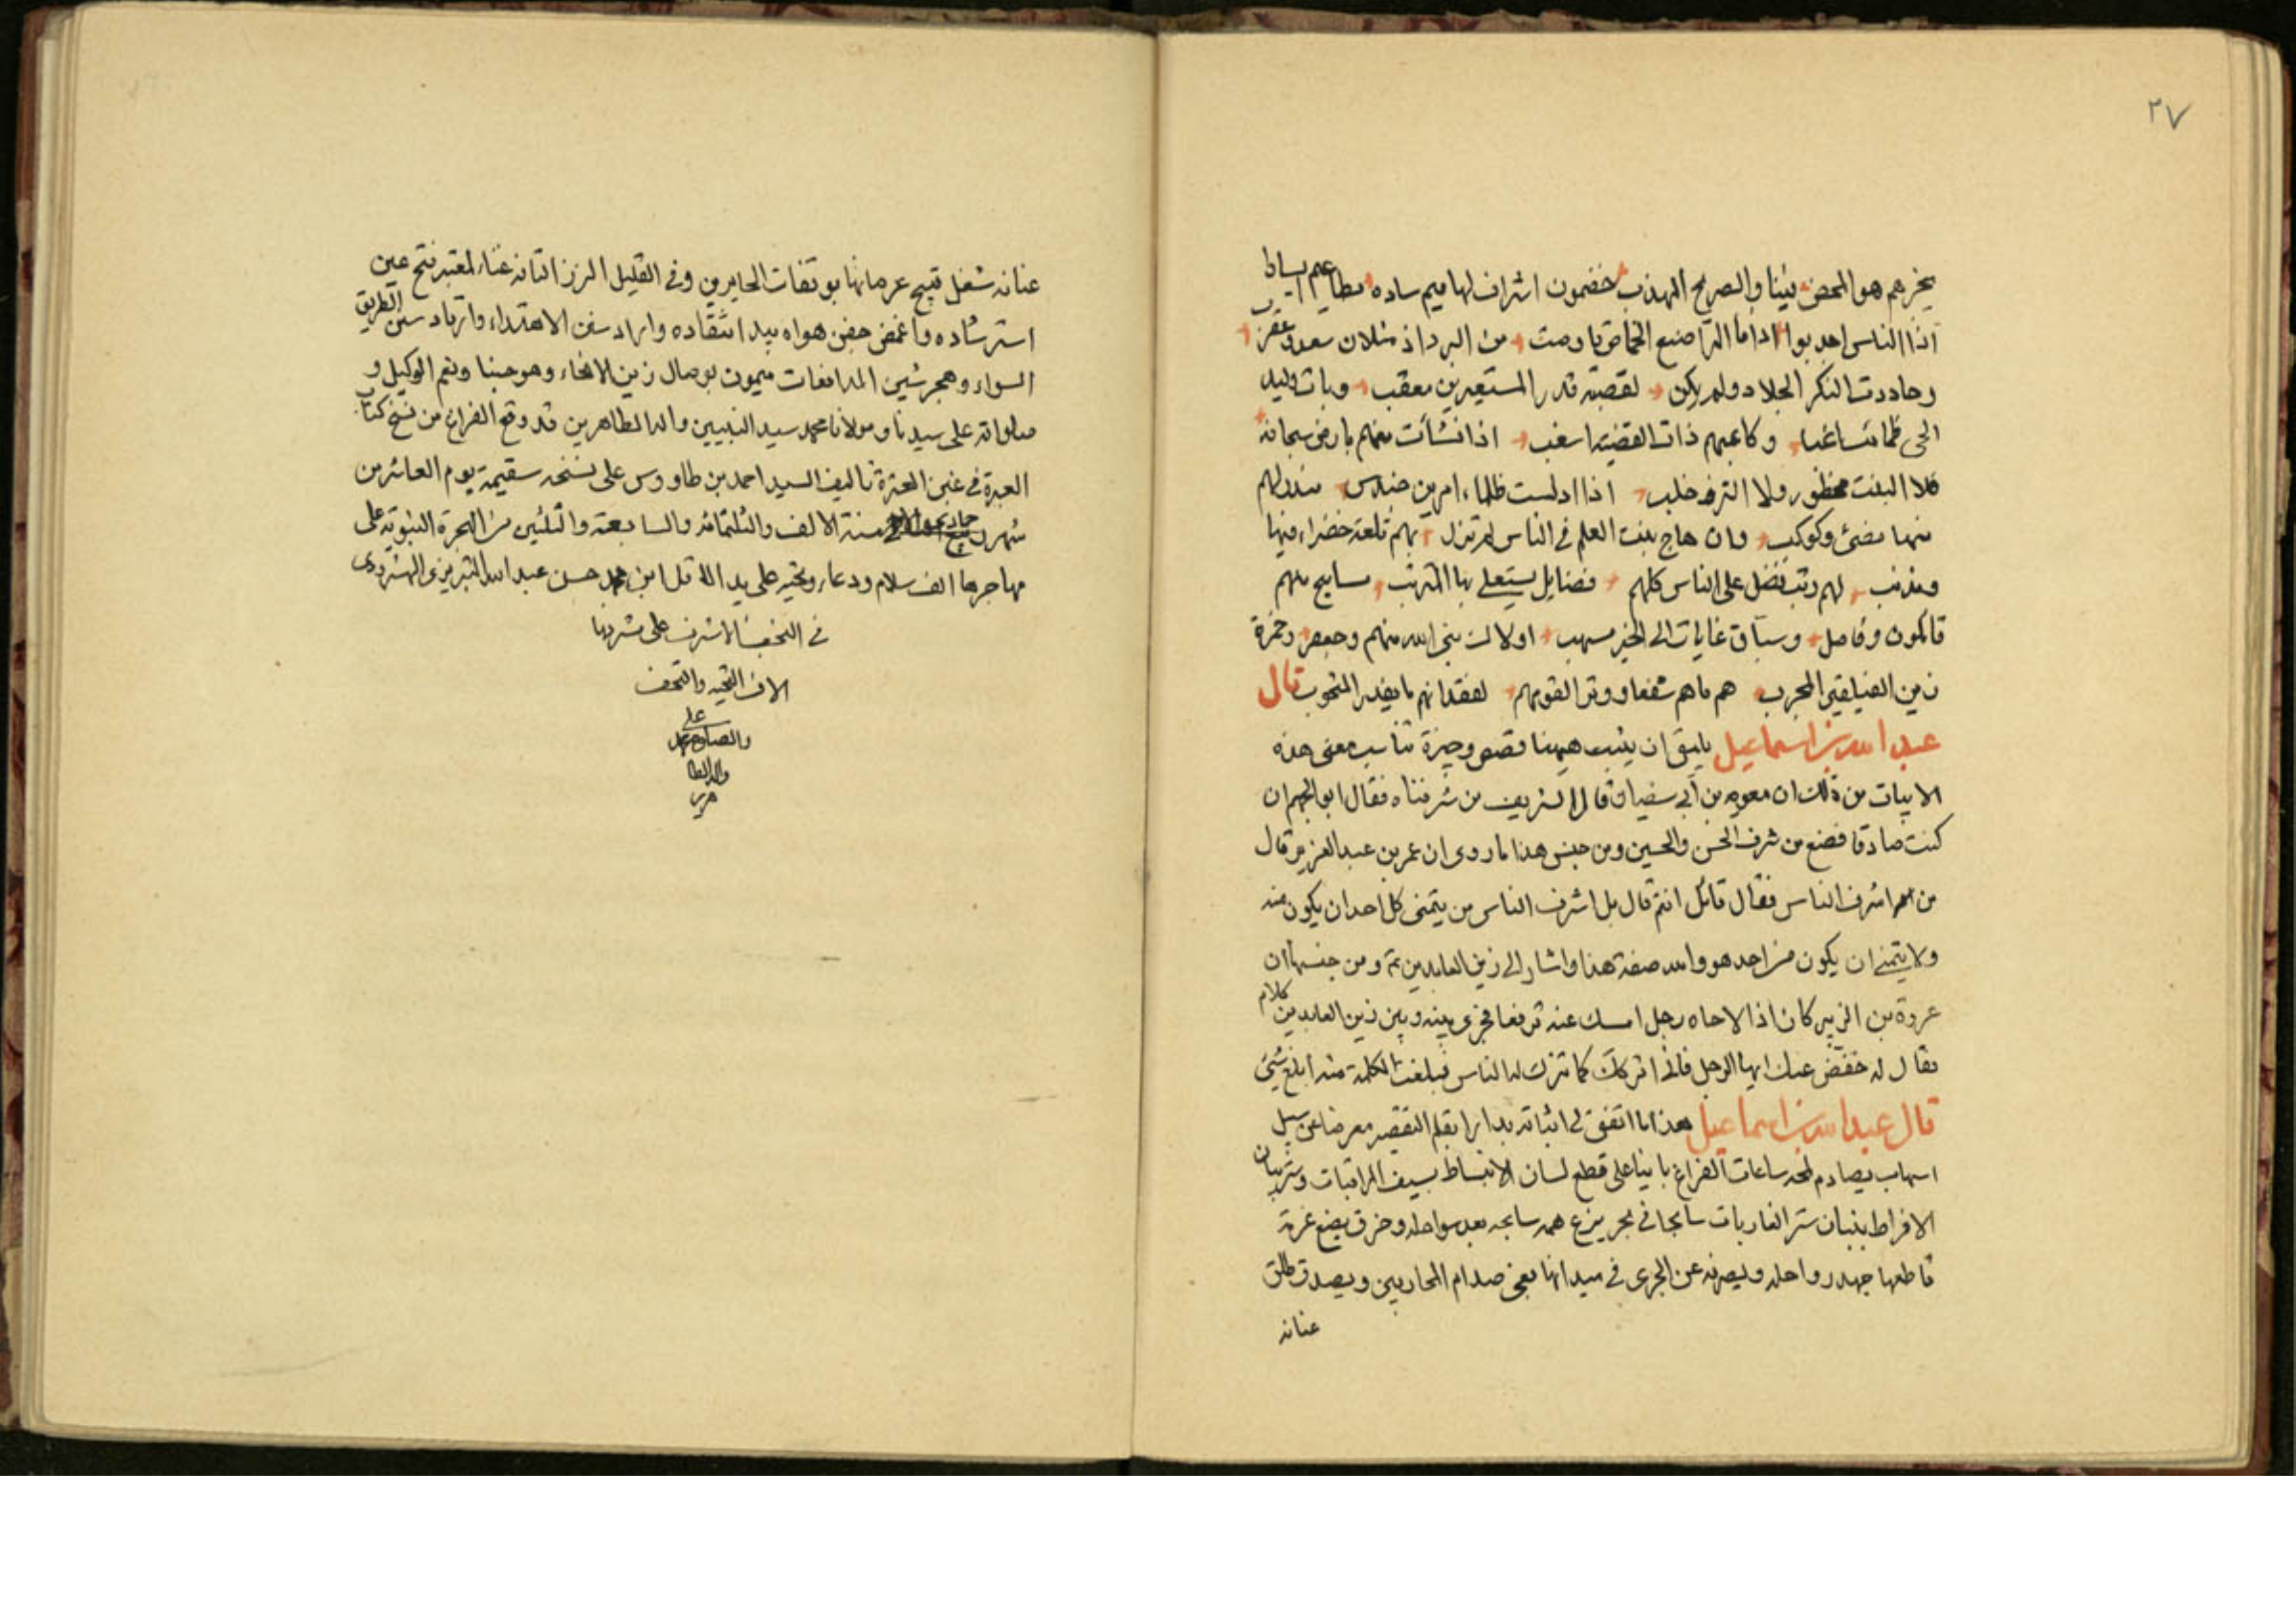 ٢٧
يخبرهم هو المحض فينا والصريح المهذب خضمون اشراف لهاميم ساده مطاعيم ايسار
اذا الناس اجدبوا اذا ما المراضيع الخماص تاوهت من البرد اذ مثلان سعد وعقرب
وحاددت النكد الجلاد ولم يكن لعقبة قدر المستعيرين معقب وبات وليد
الحي ظمان ساغبا وكاعبهم ذات القفية اسغب اذا نشأت منهم بارض سحابة
فلا النبت محظور ولا البرق خلب اذا ادلست ظلماء امرين حندس فبدر لهم
فيها مضئ وكوكب وان هاج نبت العلم في الناس لم تزل بهم تلعة خضراء فيها
ومذنب لهم رتب فضل على الناس كلهم فضايل يستعلي بها المترتب مساميح منهم
قائلون وفاصل وسباق غايات الى الخير مسهب اولاك نبي الله منهم وجعفر وحمزة
ليث الفيلقين المجرب هم ما هم شفعا ووترا لقومهم لفقدانهم ما يعذر المتحوب قال
عبد الله بن اسماعيل يليق ان يثبت هيهنا قصص وجيزة تناسب معنى هذه
الابيات من ذلك ان معوية بن ابي سفيان قال الشريف من شرفناه فقال ابو الجهم ان
كنت صادقا فضع من شرف الحسن والحسين ومن جنس هذا ما روى ان عمر بن عبد العزيز قال
من اشرف الناس فقال قائل انتم قال بل اشرف الناس من يتمنى كل احد ان يكون منه
ولا يتمنى ان يكون من احد هو والله صفة هذا واشار الى زين العابدين ع ومن جنسها ان
عروة بن الزبير كان اذا لاحاه رجل امسك عنه ترفعا فجرى بينه وبين زين العابدين كلام
فقال له خفض عليك ايها الرجل فاني اتركك كما تترك له الناس فبلغت الكلمة منه ابلغ شيئ
قال عبد الله بن اسماعيل هذا ما اتفق لي اثباته بدارا بقلم التقصير معرضا عن سبيل
اسهاب يصادم لمحه ساعات الفراغ بانيا على قطع لسان الانبساط بسيف المراقبات وستر بيان
الافراط ببنان ستر الغاربات سابحا في بحر ينزع همه سابحه بعد سواحله وخرق يضع عزمة
قاطعها جهد رواحله وليصرفه عن الجرى في ميدانها معنى صدام المحاربين ويصدق طلق
عنانه
عنانه شغل تبيح عرصاتها بوتفات الحايرين وفي القليل المرزاتانه غناء لمعتبر فتح عين
استرشاده واغمض جفن هواه بيد انتقاده واراد سفن الاهتداء وارتاد سنن الطريق
السواء وهجر شين المدافعات ميمون بوصال زين الانحاء وهو حسبنا ونعم الوكيل و
صلواته على سيدنا ومولانا محمد سيد النبيين واله الطاهرين قد وقع الفراغ من نسخ كتاب
العبرة في غبن العترة تاليف السيد احمد بن طاووس على نسخه سقيمة يوم العاشر من
شهر سنة الالف والثلثمائه والسابعة والثلثين من الهجرة النبوية على
مهاجرها الف سلام ودعاء وتحية على يد الاقل ابن محمد حسن عبد الله التبريزي
في النجف الاشرف على مشرفها
الاف التحيه والتحف
والصلوة على محمد
واله الطا
هرين